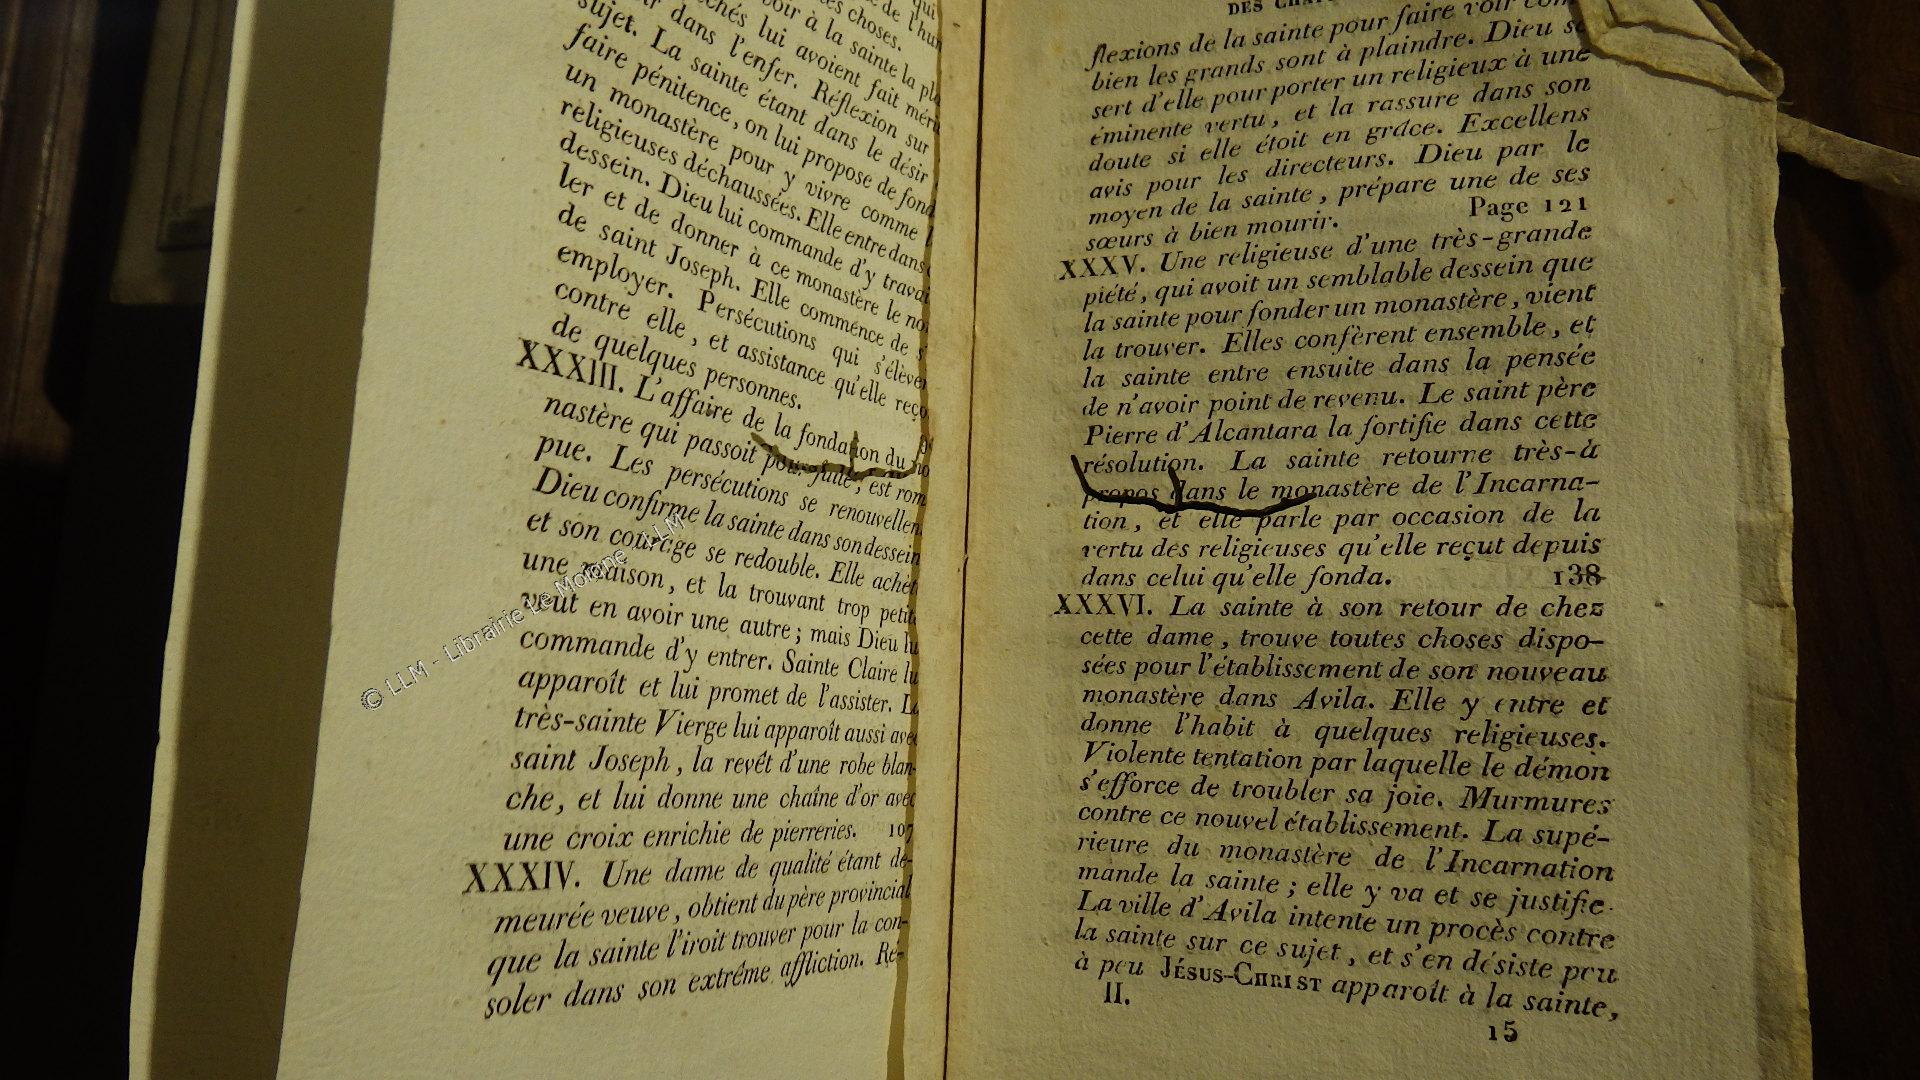 qui
de l'hum
tes choses.
voir à la sainte la pla
chés lui avoient fait méri
dans l'enfer. Réflexion sur
sujet. La sainte étant dans le désir
faire pénitence, on lui propose de fond
un monastère pour y vivre comme l
religieuses déchaussées. Elle entre dans
dessein. Dieu lui commande d'y travai
ler et de donner à ce monastère le no
de saint Joseph. Elle commence de s'
employer. Persécutions qui s'élèven
contre elle, et assistance qu'elle reço
de quelques personnes.
XXXIII. L'affaire de la fondation du
nastère qui passoit pour faite, est rom
pue. Les persécutions se renouvellen
Dieu confirme la sainte dans son dessein
et son courage se redouble. Elle achèt
une maison, et la trouvant trop petite
veut en avoir une autre; mais Dieu lu
commande d'y entrer. Sainte Claire lu
apparoît et lui promet de l'assister. La
très-sainte Vierge lui apparoît aussi avec
saint Joseph, la revêt d'une robe blan-
che, et lui donne une chaîne d'or avec
une croix enrichie de pierreries. 107
XXXIV. Une dame de qualité étant de-
meurée veuve, obtient du père provincial
que la sainte l'iroit trouver pour la con-
soler dans son extrême affliction. Ré-
© LLM - Librairie Le Moigne - LLM
DES
flexions de la sainte pour faire voir com
bien les grands sont à plaindre. Dieu se
sert d'elle pour porter un religieux à une
éminente vertu, et la rassure dans son
doute si elle étoit en grâce. Excellens
avis pour les directeurs. Dieu par le
moyen de la sainte, prépare une de ses
sœurs à bien mourir. Page 121
XXXV. Une religieuse d'une très-grande
piété, qui avoit un semblable dessein que
la sainte pour fonder un monastère, vient
la trouver. Elles confèrent ensemble, et
la sainte entre ensuite dans la pensée
de n'avoir point de revenu. Le saint père
Pierre d'Alcantara la fortifie dans cette
résolution. La sainte retourne très-à
propos dans le monastère de l'Incarna-
tion, et elle parle par occasion de la
vertu des religieuses qu'elle reçut depuis
dans celui qu'elle fonda. 138
XXXVI. La sainte à son retour de chez
cette dame, trouve toutes choses dispo-
sées pour l'établissement de son nouveau
monastère dans Avila. Elle y entre et
donne l'habit à quelques religieuses.
Violente tentation par laquelle le démon
s'efforce de troubler sa joie. Murmures
contre ce nouvel établissement. La supé-
rieure du monastère de l'Incarnation
mande la sainte; elle y va et se justifie.
La ville d'Avila intente un procès contre
la sainte sur ce sujet, et s'en désiste peu
à peu JÉSUS-CHRIST apparoît à la sainte,
II.
15